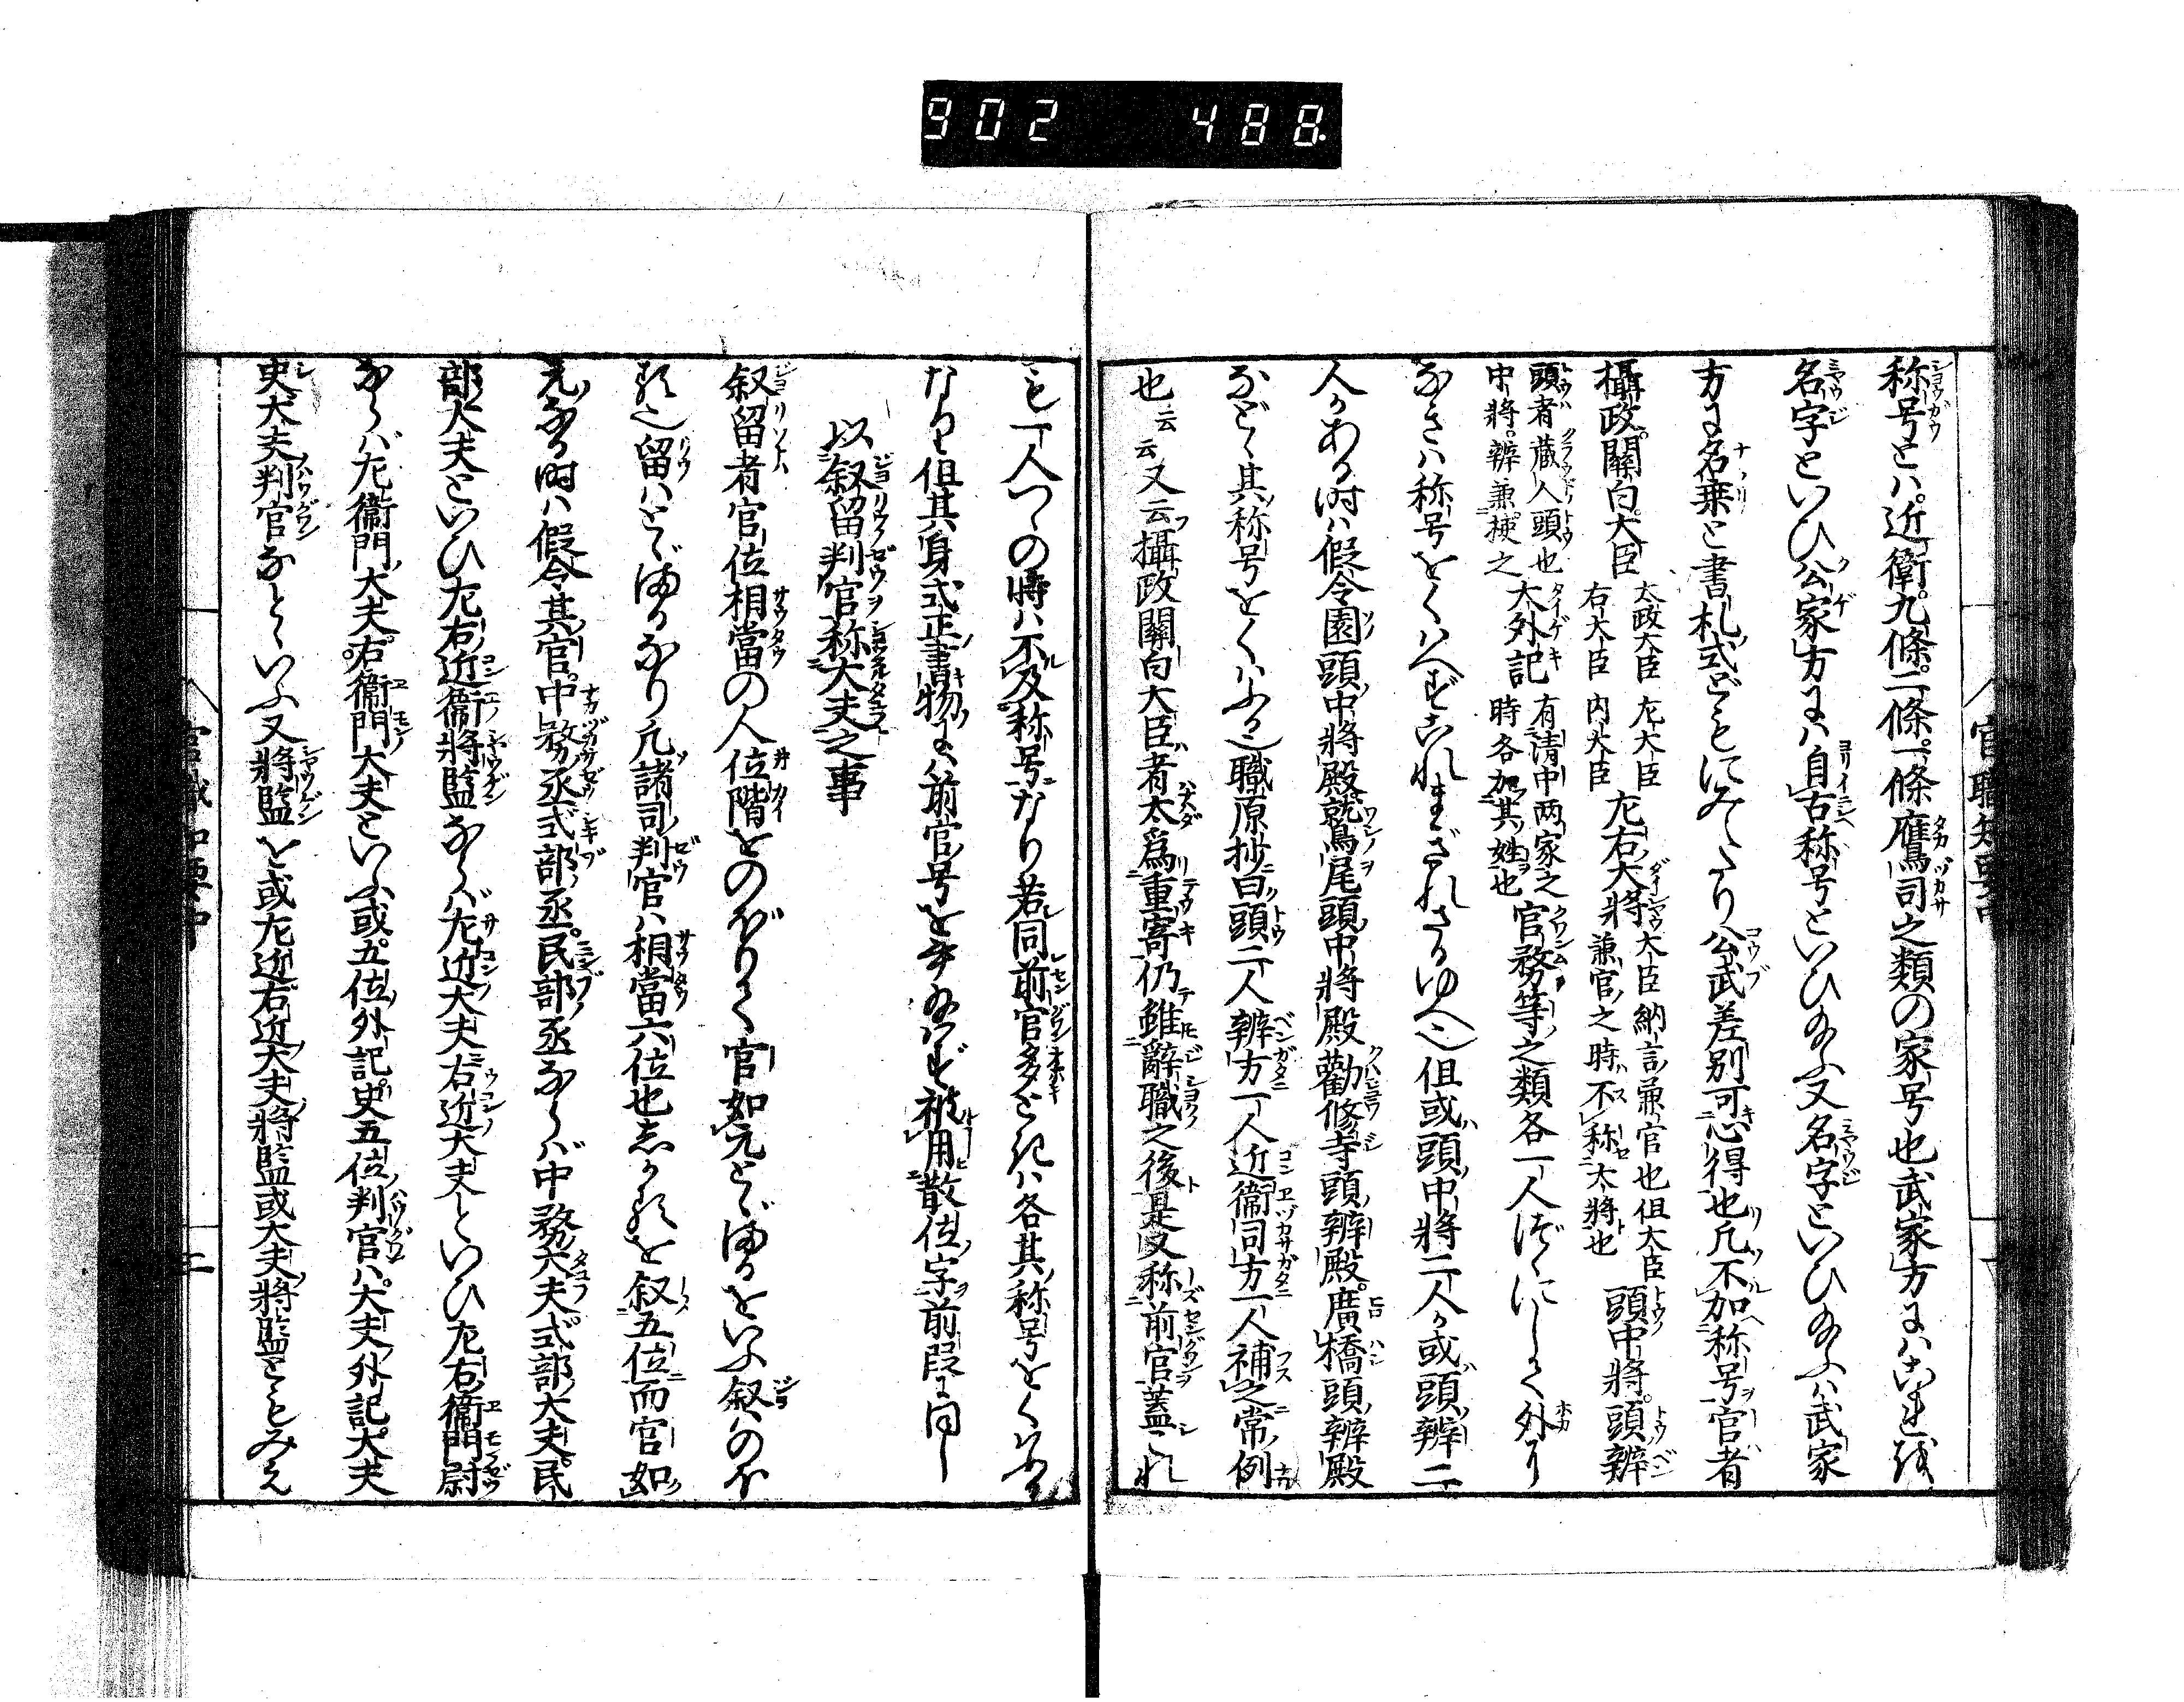 902 488
官職知要中
称号とハ近衛九條二條一條鷹司之類の家号也武家方にハこれを
名字といひ公家方にハ自古称号といひ給ふ又名字といひ給ふハ武家
方に名乗と書札式どもにみへたり公武差別可心得也凡不加称号官者
攝政關白大臣 太政大臣 左大臣 右大臣 内大臣 左右大將 大臣納言兼官也但大臣兼官之時不称大將也 頭中將頭辨
頭者蔵人頭也中將辨兼補之 大外記 有清中両家之時各加其姓也 官務等之類各一人づゝにして外に
なきハ称号をくハへずこれまぎれざるゆへ也但或頭中將二人か或頭辨二
人かある時ハ假令園頭中將殿鷲尾頭中將殿勸修寺頭辨殿廣橋頭辨殿
などゝ其称号をくハふる也職原抄曰頭二人辨方一人近衛司方一人補之常例
也云云又云攝政關白大臣者太為重寄仍雖辭職之後是又称前官蓋これ
も一人つゝの時ハ不及称号なり若同前官多ときハ各其称号をくハふる
なりと但其身式正書物にハ前官号を書給ハず被用散位字前段に同し
以叙留判官称大夫之事
叙留者官位相當の人位階をのぼりて官如元とゞまるをいふ叙ハのほ
る也留ハとゞまるなり凡諸司判官ハ相當六位也しかるを叙五位而官如
元なる時ハ假令其官中務丞式部丞民部丞ならバ中務大夫式部大夫民
部大夫といひ左右近衛將監ならバ左近大夫右近大夫といひ左右衛門尉
ならバ左衛門大夫右衛門大夫といふ或五位外記史五位判官ハ大夫外記大夫
史大夫判官なとゝいふ又將監を或左近右近大夫將監或大夫將監ともみえ
官職知要中
二